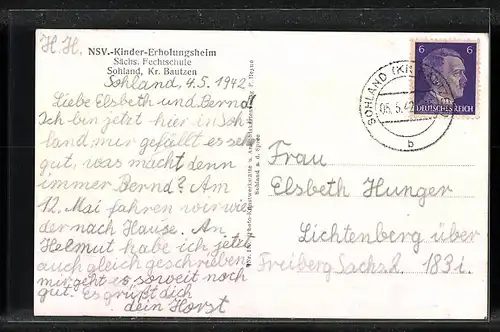 H. H. NSV.-Kinder-Erholungsheim
Sächs. Fechtschule
Sohland, Kr. Bautzen
Sohland, 4.5.1942
Liebe Elsbeth und Bernd!
Ich bin jetzt hier in Soh
land, mir gefällt es sehr
gut, was macht denn
immer Bernd? Am
12. Mai fahren wir wie
der nach Hause. An
Helmut habe ich jetzt
auch gleich geschrieben
mir geht es soweit noch
gut. Es grüßt dich
dein Horst
Sohland a. d. Spree
6 6
DEUTSCHES REICH
SOHLAND
05.5.42
b
Frau
Elsbeth Hunger
Lichtenberg über
Freiberg Sachs. 183 i.